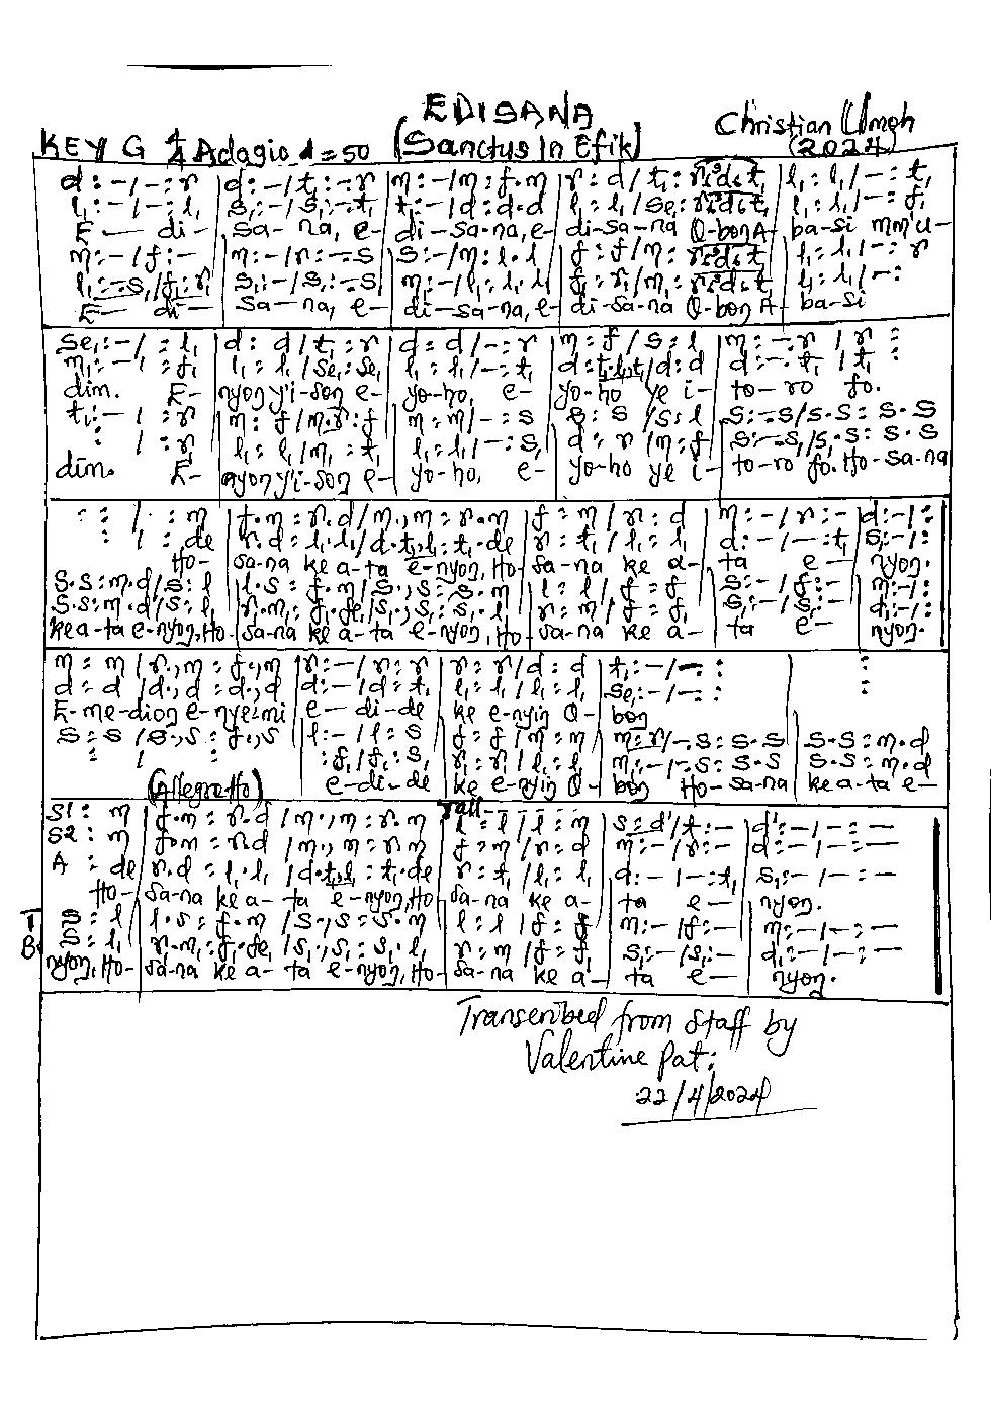 EDISANA
KEY G 4/4 Adagio d=50 (Sanctus In Efik) Christian Umoh
(2024)
d :-/-: r | d :-/t₁:-: r | m :-/m : f.m | r : d / t₁ : r.d.t₁ | l₁ : l₁/-: t₁
l₁ :-/-: l₁ | s₁ :-/s₁:-: t₁ | t₁ :-/d : d.d | l₁ : l₁/se₁ : r.d.t₁ | l₁ : l₁/-: f₁
E— di- | sa- na, e- | di-sa-na, e- | di-sa-na O-bon A- | ba-si mm'u-
m :-/f :- | m :-/r :-: s | s :-/m : l.l | f : f/m : r.d.t₁ | l₁ : l₁/-: r
l₁ :-: s₁/f₁ : r₁ | s₁ :-/s₁ :-: s | m :-/l₁ : l₁.l₁ | f₁ : r₁/m₁ : r.d.t₁ | l₁ : l₁/-:
E— di- | sa-na, e- | di-sa-na, e- | di-sa-na O-bon A- | ba-si
se₁ :-/ : l₁ | d : d/t₁ : r | d : d/-: r | m : f/s : l | m :-: r/r :
m₁ :-/ : l₁ | l₁ : l₁/se₁ : se₁ | l₁ : l₁/-: t₁ | d : t₁.l₁.t₁/d : d | d :-. t₁/t₁ :
dim. E- | nyoŋ y'i-soŋ e- | yo-ho, e- | yo-ho ye i- | to-ro fo.
t₁ :-/ : r | m : f/m.r : f | m : m/-: s | s : s/s : l | s :-: s/s.s : s.s
: / : r | l₁ : l₁/m₁ : t₁ | l₁ : l₁/-: s₁ | d : r/m : f | s :-: s₁/s₁.s : s.s
dim. E- | nyoŋ y'i-soŋ e- | yo-ho, e- | yo-ho ye i- | to-ro fo. Ho-sa-na
: / : m | f.m : r.d/m.,m : r.m | f : m/r : d | m :-/r :- | d :-/:
: / : de | r.d : l₁.l₁/d.t₁,l₁ : t₁.de | r : t₁/l₁ : l₁ | d :-/-: t₁ | s₁ :-/:
Ho- | sa-na ke a-ta e-nyoŋ, Ho- | sa-na ke a- | ta e- | nyoŋ.
s.s : m.d/s : l | l.s : f.m/s.,s : s.m | l : l/f : f | s :-/f :- | m :-/:
s.s : m.d/s : l₁ | r.m₁ : f₁.fe₁/s₁.,s₁ : s₁.l₁ | r : m/f : f₁ | s₁ :-/s₁ :- | d₁ :-/:
ke a-ta e-nyoŋ, Ho- | sa-na ke a-ta e-nyoŋ, Ho- | sa-na ke a- | ta e- | nyoŋ.
m : m/r.,m : f.,m | r :-/r : r | r : r/d : d | t₁ :-/-: | :
d : d/d.,d : d.,d | d :-/d : t₁ | l₁ : l₁/l₁ : l₁ | se₁ :-/-: | :
E-me-dioŋ e-nye-mi | e-di-de | ke e-nyiŋ O- | boŋ
s : s/s.,s : f.,s | l :-/l : s | f : f/m : m | m : r/-. s : s.s | s.s : m.d
: / : | : f₁/f₁ : s₁ | r : r/l₁ : l₁ | m₁ :-/-: s : s.s | s.s : m.d
e-di-de | ke e-nyiŋ O- | boŋ Ho-sa-na | ke a-ta e-
(Allegretto) rall- - - - - -
S1 : m | f.m : r.d/m.,m : r.m | l : l/l : m | s : d'/t :- | d' :-/-:-
S2 : m | f.m : r.d/m.,m : r.m | f : m/r : d | m :-/r :- | d :-/-:-
A : de | r.d : l₁.l₁/d.t₁,l₁ : t₁.de | r : t₁/l₁ : l₁ | d :-/-: t₁ | s₁ :-/-:-
Ho- | sa-na ke a-ta e-nyoŋ, Ho | sa-na ke a- | ta e- | nyoŋ.
T s : l | l.s : f.m/s.,s : s.m | l : l/f : f | m :-/f :- | m :-/-:-
B. s : l₁ | r.m₁ : f₁.fe₁/s₁.,s₁ : s₁.l₁ | r : m/f : f₁ | s₁ :-/s₁ :- | d₁ :-/-:-
nyoŋ, Ho- | sa-na ke a-ta e-nyoŋ, Ho- | sa-na ke a- | ta e- | nyoŋ.
Transcribed from staff by
Valentine Pat:
22/4/2024